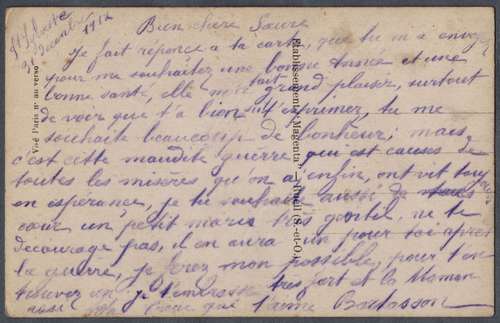 St Sylvestre
31 Décembre 1917
Bien chère Sœure
Je fait réponce à ta carte, que tu m'a envoyé
pour me souhaitez une bonne année et une
bonne santé, elle m'a fait grand plaisir, surtout
de voir que t'a bien su t'esprimer, tu me
souhaite beaucoup de bonheur, mais
c'est cette maudite guérre, qui est causes de
toutes les misères qu'on a, enfin, ont vit toujours
en espérance, je tu souhaite aussi de
cœur un petit maris très gentil, ne te
decourage pas, il en aura un pour toi après
la guérre, je ferez mon possible, pour t'en
trouver un, je t'embrasse très fort et la Maman
aussi frère que t'aime
Vise Paris n° au verso
Etablissements Magenta (S.-et-O.)